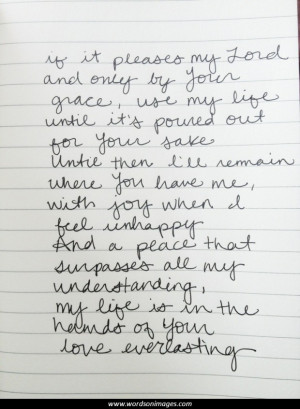 if it pleases my Lord
and only by Your
grace, use my life
until it's poured out
for Your sake
Until then I'll remain
where You have me,
with joy when I
feel unhappy
And a peace that
surpasses all my
understanding,
my life is in the
hands of Your
love everlasting
www.wordsonimages.com